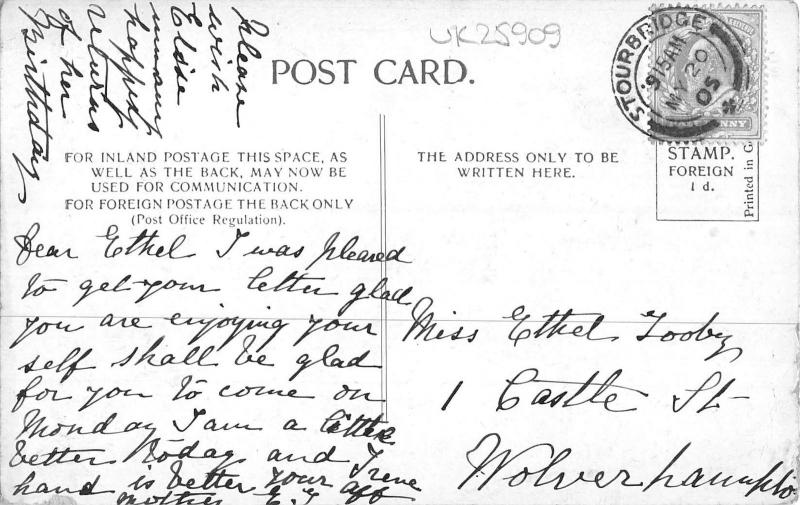 Please
wish
Elsie
many
happy
returns
of her
Birthday
UK25909
POST CARD.
STOURBRIDGE
9.15AM
MY 20
05
FOR INLAND POSTAGE THIS SPACE, AS
WELL AS THE BACK, MAY NOW BE
USED FOR COMMUNICATION.
FOR FOREIGN POSTAGE THE BACK ONLY
(Post Office Regulation).
THE ADDRESS ONLY TO BE
WRITTEN HERE.
STAMP.
FOREIGN
1 d.
Printed in G
Dear Ethel I was pleased
to get your letter glad
you are enjoying your
self shall be glad
for you to come on
Monday I am a little
better today and Irene
hand is better your aff
mother E.T
Miss Ethel Tooby
1 Castle St
Wolverhampto